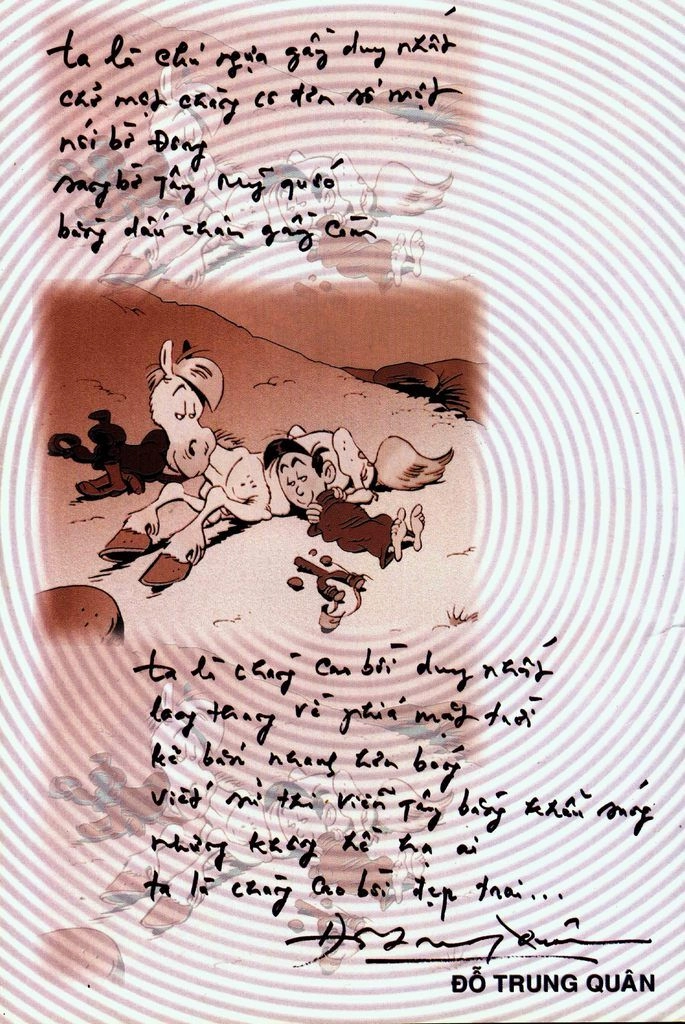 ta là chú ngựa gầy duy nhất
chở một chàng cao bồi số một
nối bờ Đông
sang bờ Tây Mỹ quốc
bằng dấu chân gầy còm
ta là chàng cao bồi duy nhất
lang thang về phía mặt trời
kẻ bắn nhanh hơn bóng
viết sử thi viễn Tây bằng khẩu súng
nhưng không hề hạ ai
ta là chàng cao bồi đẹp trai...
ĐỖ TRUNG QUÂN